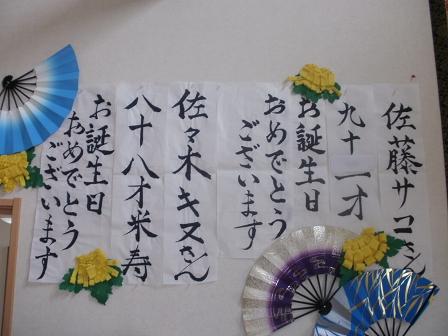 佐藤サコさん
九十一才
お誕生日
おめでとう
ございます
佐々木キヌさん
八十八才米寿
お誕生日
おめでとう
ございます